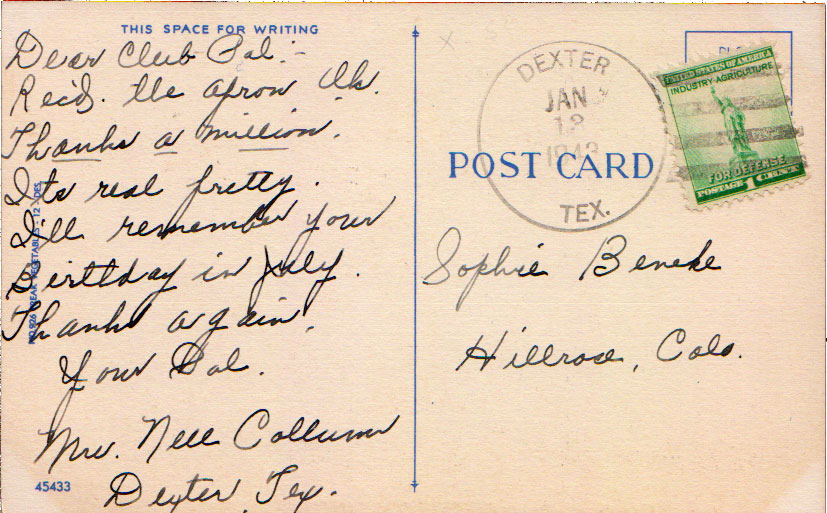 THIS SPACE FOR WRITING
Dear Club Pal:-
Rec'd. the apron Ok.
Thanks a million.
Its real pretty.
I'll remember your
Birthday in July.
Thanks again.
Your Pal.
Mrs. Nell Collum
Dexter, Tex.
45433
DEXTER
JAN
1943
TEX.
POST CARD
UNITED STATES OF AMERICA
INDUSTRY-AGRICULTURE
FOR DEFENSE
POSTAGE 1 CENT
Sophie Beneke
Hillrose, Colo.